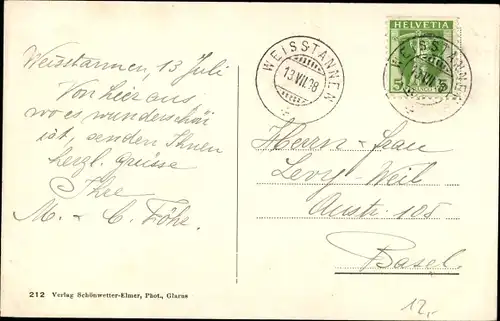 Weisstannen, 13 Juli
Von hier aus,
wo es wunderschön
ist, senden Ihnen
herzl. Grüsse
Ihre
M. & C. Föhr.
212 Verlag Schönwetter-Elmer, Phot., Glarus
WEISSTANNEN
13.VII.08
HELVETIA
5
WEISSTANNEN
Herrn & Frau
Levy-Weil
Austr. 105
Basel
12,-